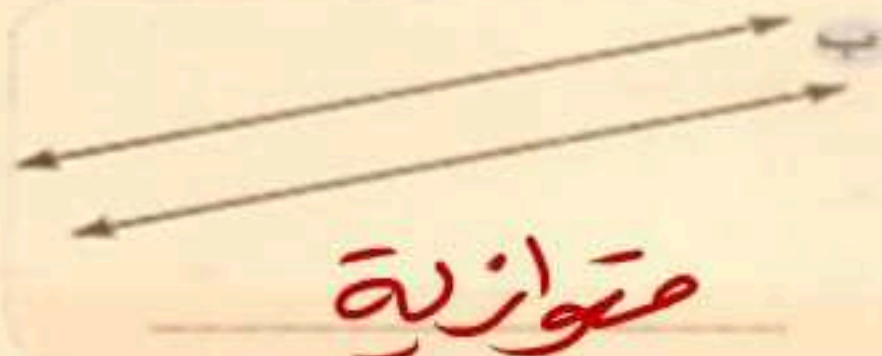 ب
متوازية